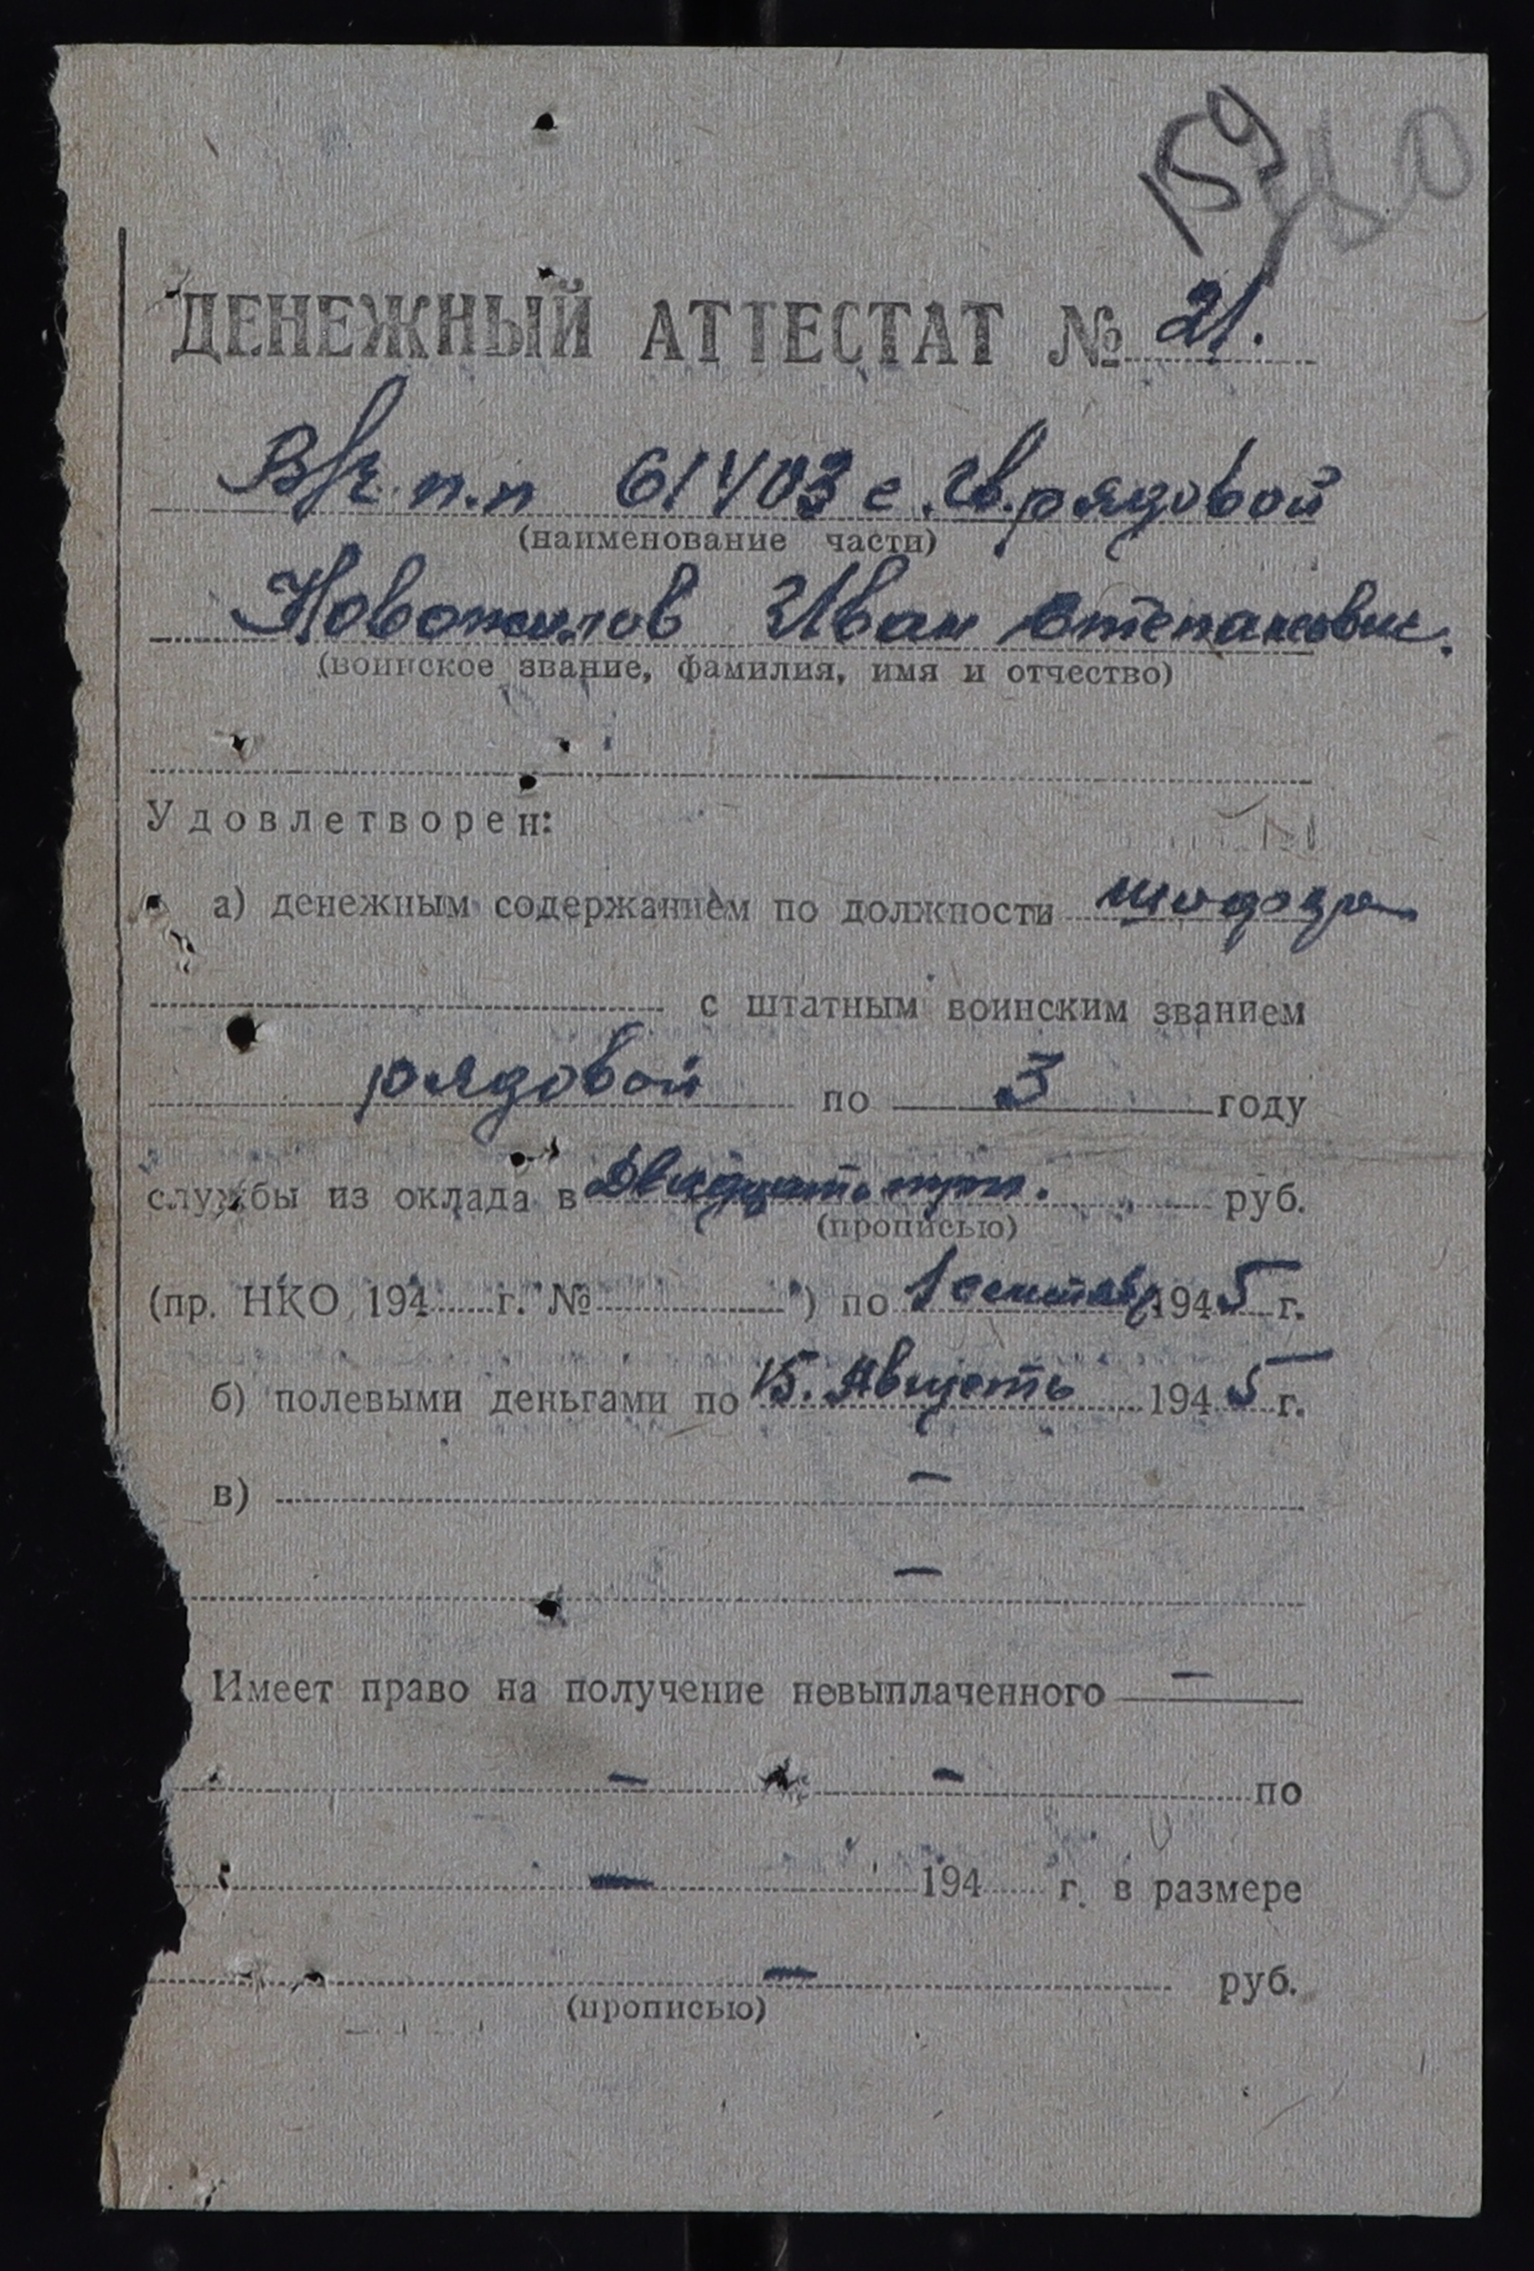 159
ДЕНЕЖНЫЙ АТТЕСТАТ № 21.
В/ч. п.п 61403 е. Гв. рядовой
(наименование части)
Новожилов Иван Степанович.
(воинское звание, фамилия, имя и отчество)
Удовлетворен:
а) денежным содержанием по должности
с штатным воинским званием
рядовой по 3 году
службы из оклада в Двадцать три. руб.
(прописью)
(пр. НКО 194 г. № ") по 1 сентябр 1945 г.
б) полевыми деньгами по 15. Августь 1945 г.
в) —
—
Имеет право на получение невыплаченного —
— — по
— 194 г. в размере
— руб.
(прописью)